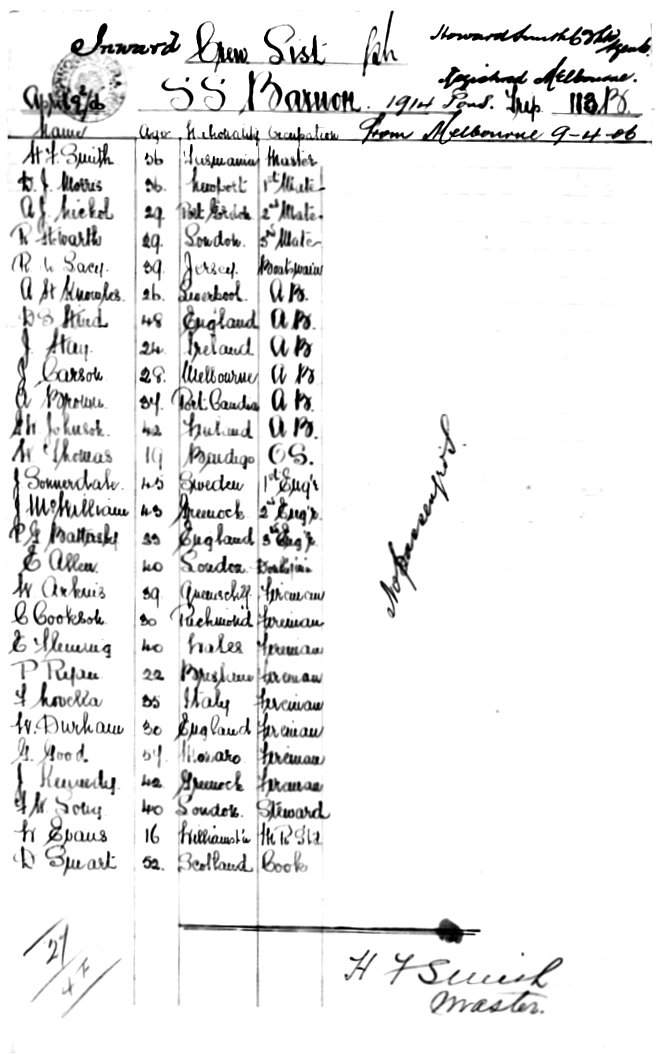 Inward Crew List
Howard Smith Co Ltd
Agents
Registered Melbourne.
April
SS Barron. 1914 Tons. Trip 113 B.
Name Age Nationality Occupation From Melbourne 9-4-06
H F Smith 36 Tasmania Master
D. J. Morris 36. Newport 1st Mate
A J. Nickol 29. Port Gordon 2nd Mate
R Stewarth 29. London. 3rd Mate
R Lacy. 39. Jersey. Boatswain
A H Knowles. 26. Liverpool. A B.
D S Stud 48 England A B.
J Hay. 24 Ireland A B
J Carson 28. Melbourne A B
A Brown. 34. A B.
Johnson. 42 A B.
W Thomas 19 Bendigo OS.
J Sonnerdale. 45 Sweden 1st Eng'r
J McWilliam 43 Greenock 2nd Eng'r.
P G 33 England 3rd Eng'r
E Allen. 40 London
W 39 Queenscliff Fireman
C Cookson. 30 Richmond Fireman
E Fleming 40 Wales Fireman
P Ryan 22 Brisbane Fireman
F Novella 35 Italy Fireman
W. Durham 30 England Fireman
G. Good. 34. Monaro Fireman
J Kennedy. 42 Greenock Fireman
F W. Long 40 London. Steward
W Evans 16 Williamst'n M R Std
D Smart 52. Scotland Cook
No Passengers.
27
H F Smith
Master.